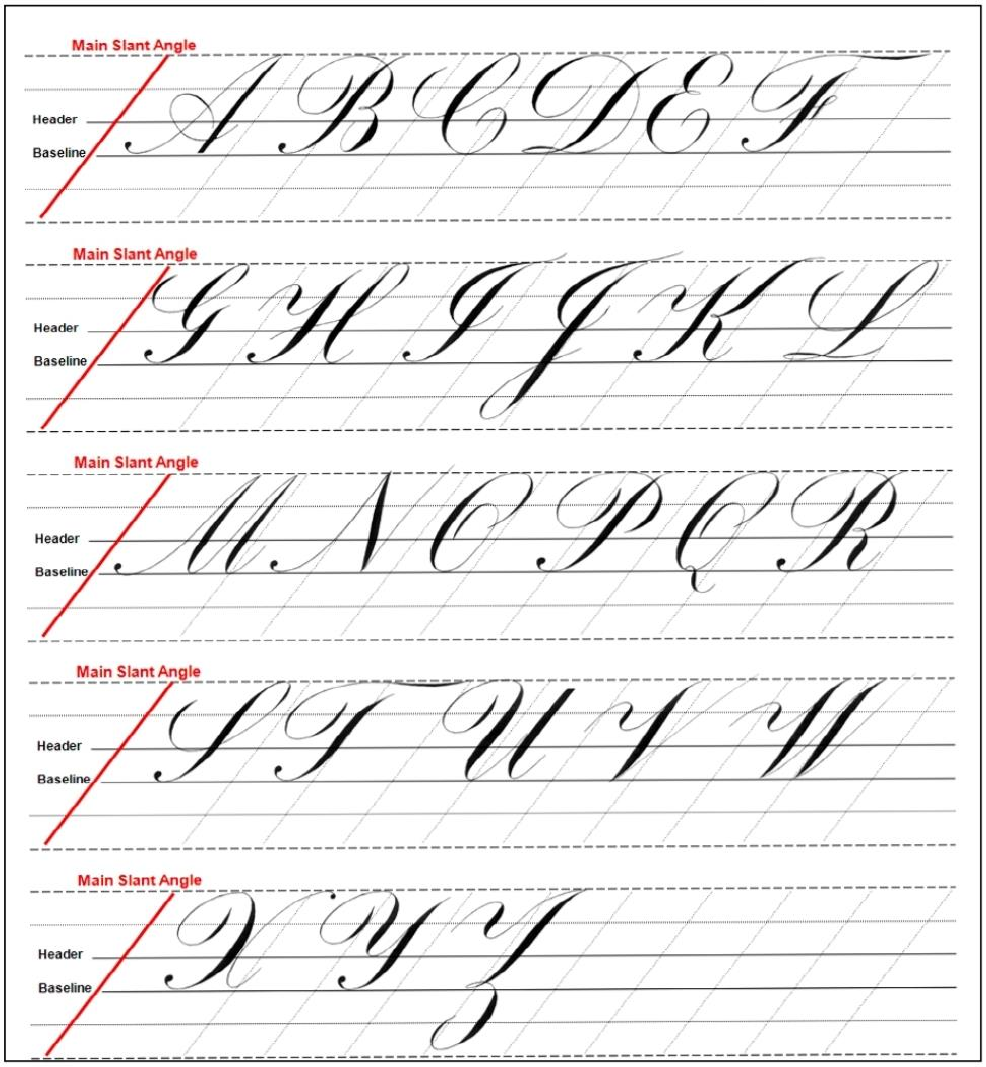 Main Slant Angle
A B C D E F
Header
Baseline
Main Slant Angle
G H I J K L
Header
Baseline
Main Slant Angle
M N O P Q R
Header
Baseline
Main Slant Angle
S T U V W
Header
Baseline
Main Slant Angle
X Y Z
Header
Baseline